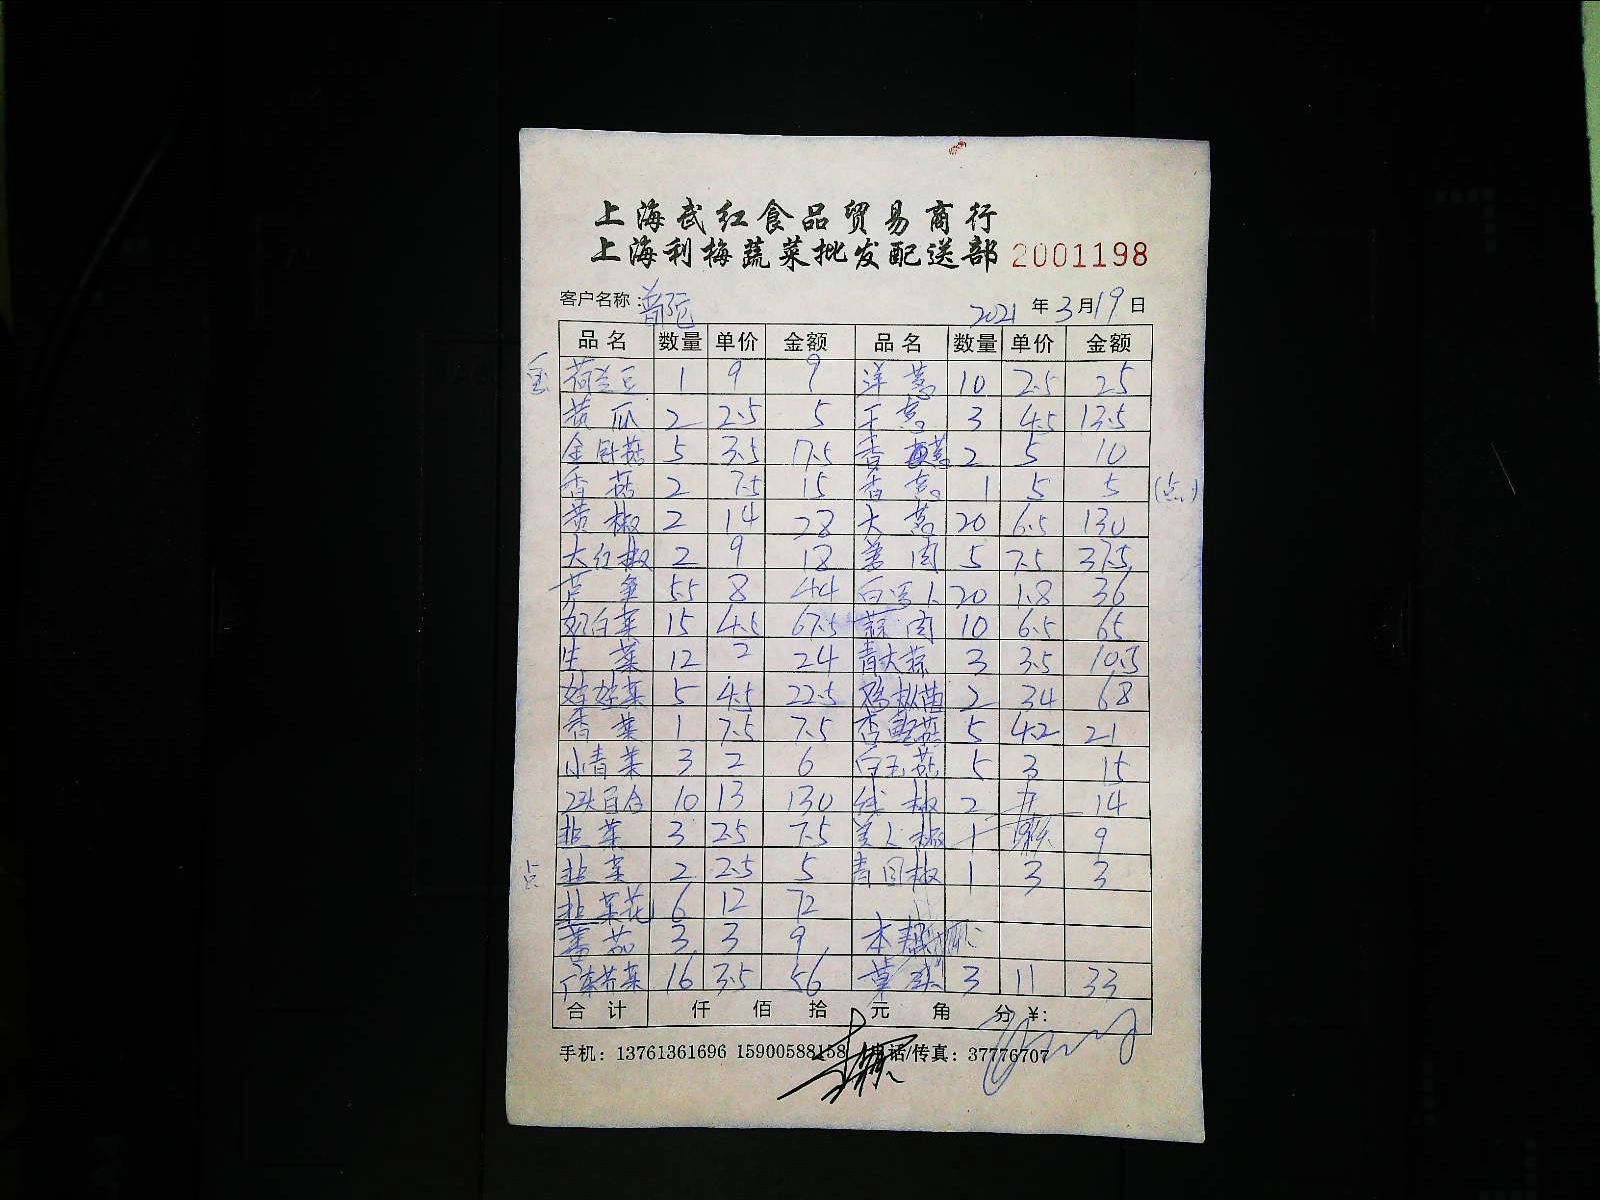 上海武红食品贸易商行
上海利梅蔬菜批发配送部 2001198
客户名称：普陀 2021年3月19日
品名 数量 单价 金额 品名 数量 单价 金额
荷兰豆 1 9 9 洋葱 10 2.5 25
黄瓜 2 2.5 5 干葱 3 4.5 13.5
金针菇 5 3.5 17.5 香 2 5 10
香菇 2 7.5 15 香葱 1 5 5 (点)
黄椒 2 14 28 大葱 20 6.5 130
大红椒 2 9 18 姜肉 5 7.5 37.5
芦 5.5 8 44 白 20 1.8 36
奶白菜 15 4.5 67.5 蒜肉 10 6.5 65
生菜 12 2 24 青大蒜 3 3.5 10.5
娃娃菜 5 4.5 22.5 鸡枞菌 2 34 68
香菜 1 7.5 7.5 杏鲍菇 5 4.2 21
小青菜 3 2 6 白玉菇 5 3 15
2头百合 10 13 130 线椒 2 14
韭菜 3 2.5 7.5 美人椒 1 9
点 韭菜 2 2.5 5 青圆椒 1 3 3
韭菜花 6 12 72
蕃茄 3 3 9 本
广东芥菜 16 3.5 56 3 11 33
合计 仟 佰 拾 元 角 分 ¥:
手机：13761361696 15900588158 电话/传真：37776707